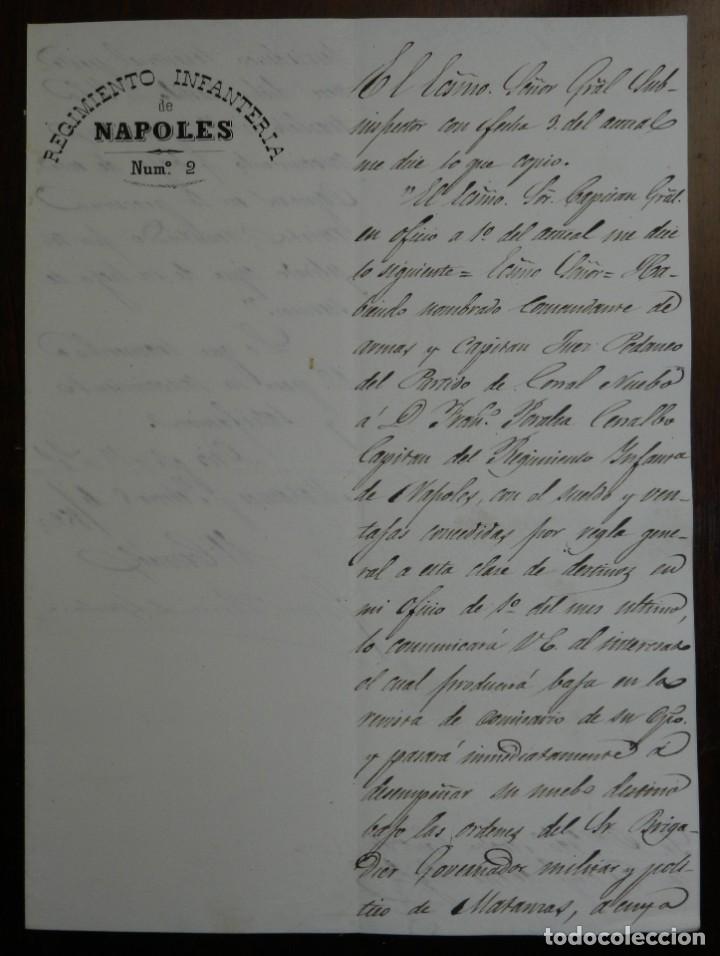 REGIMIENTO INFANTERIA
de
NAPOLES
Numº 2
El Ecsmo. Señor Gral Sub-
inspector con fecha 3. del actual
me dice lo que copio.
"El Ecsmo. Sor. Capitan Gral.
en oficio a 1º del actual me dice
lo siguiente = Ecsmo Señor = Ha-
biendo nombrado Comandante de
armas y Capitan Juez Pedaneo
del Partido de Corral Nuebo
á D. Franº. Peralta Cerralbo
Capitan del Regimiento Infantª
de Napoles, con el sueldo y ven-
tafas concedidas por regla gene-
ral a esta clase de destinos en
mi oficio de 1º del mes ultimo,
lo comunicará V.E. al interesado
el cual producirá bafa en la
revista de comisario de su Cpo.
y pasará inmediatamente á
desempeñar su nuebo destino
bafo las ordenes del Sr. Briga-
dier Governador militar y poli-
tico de Matanzas, a cuya
todocoleccion.net